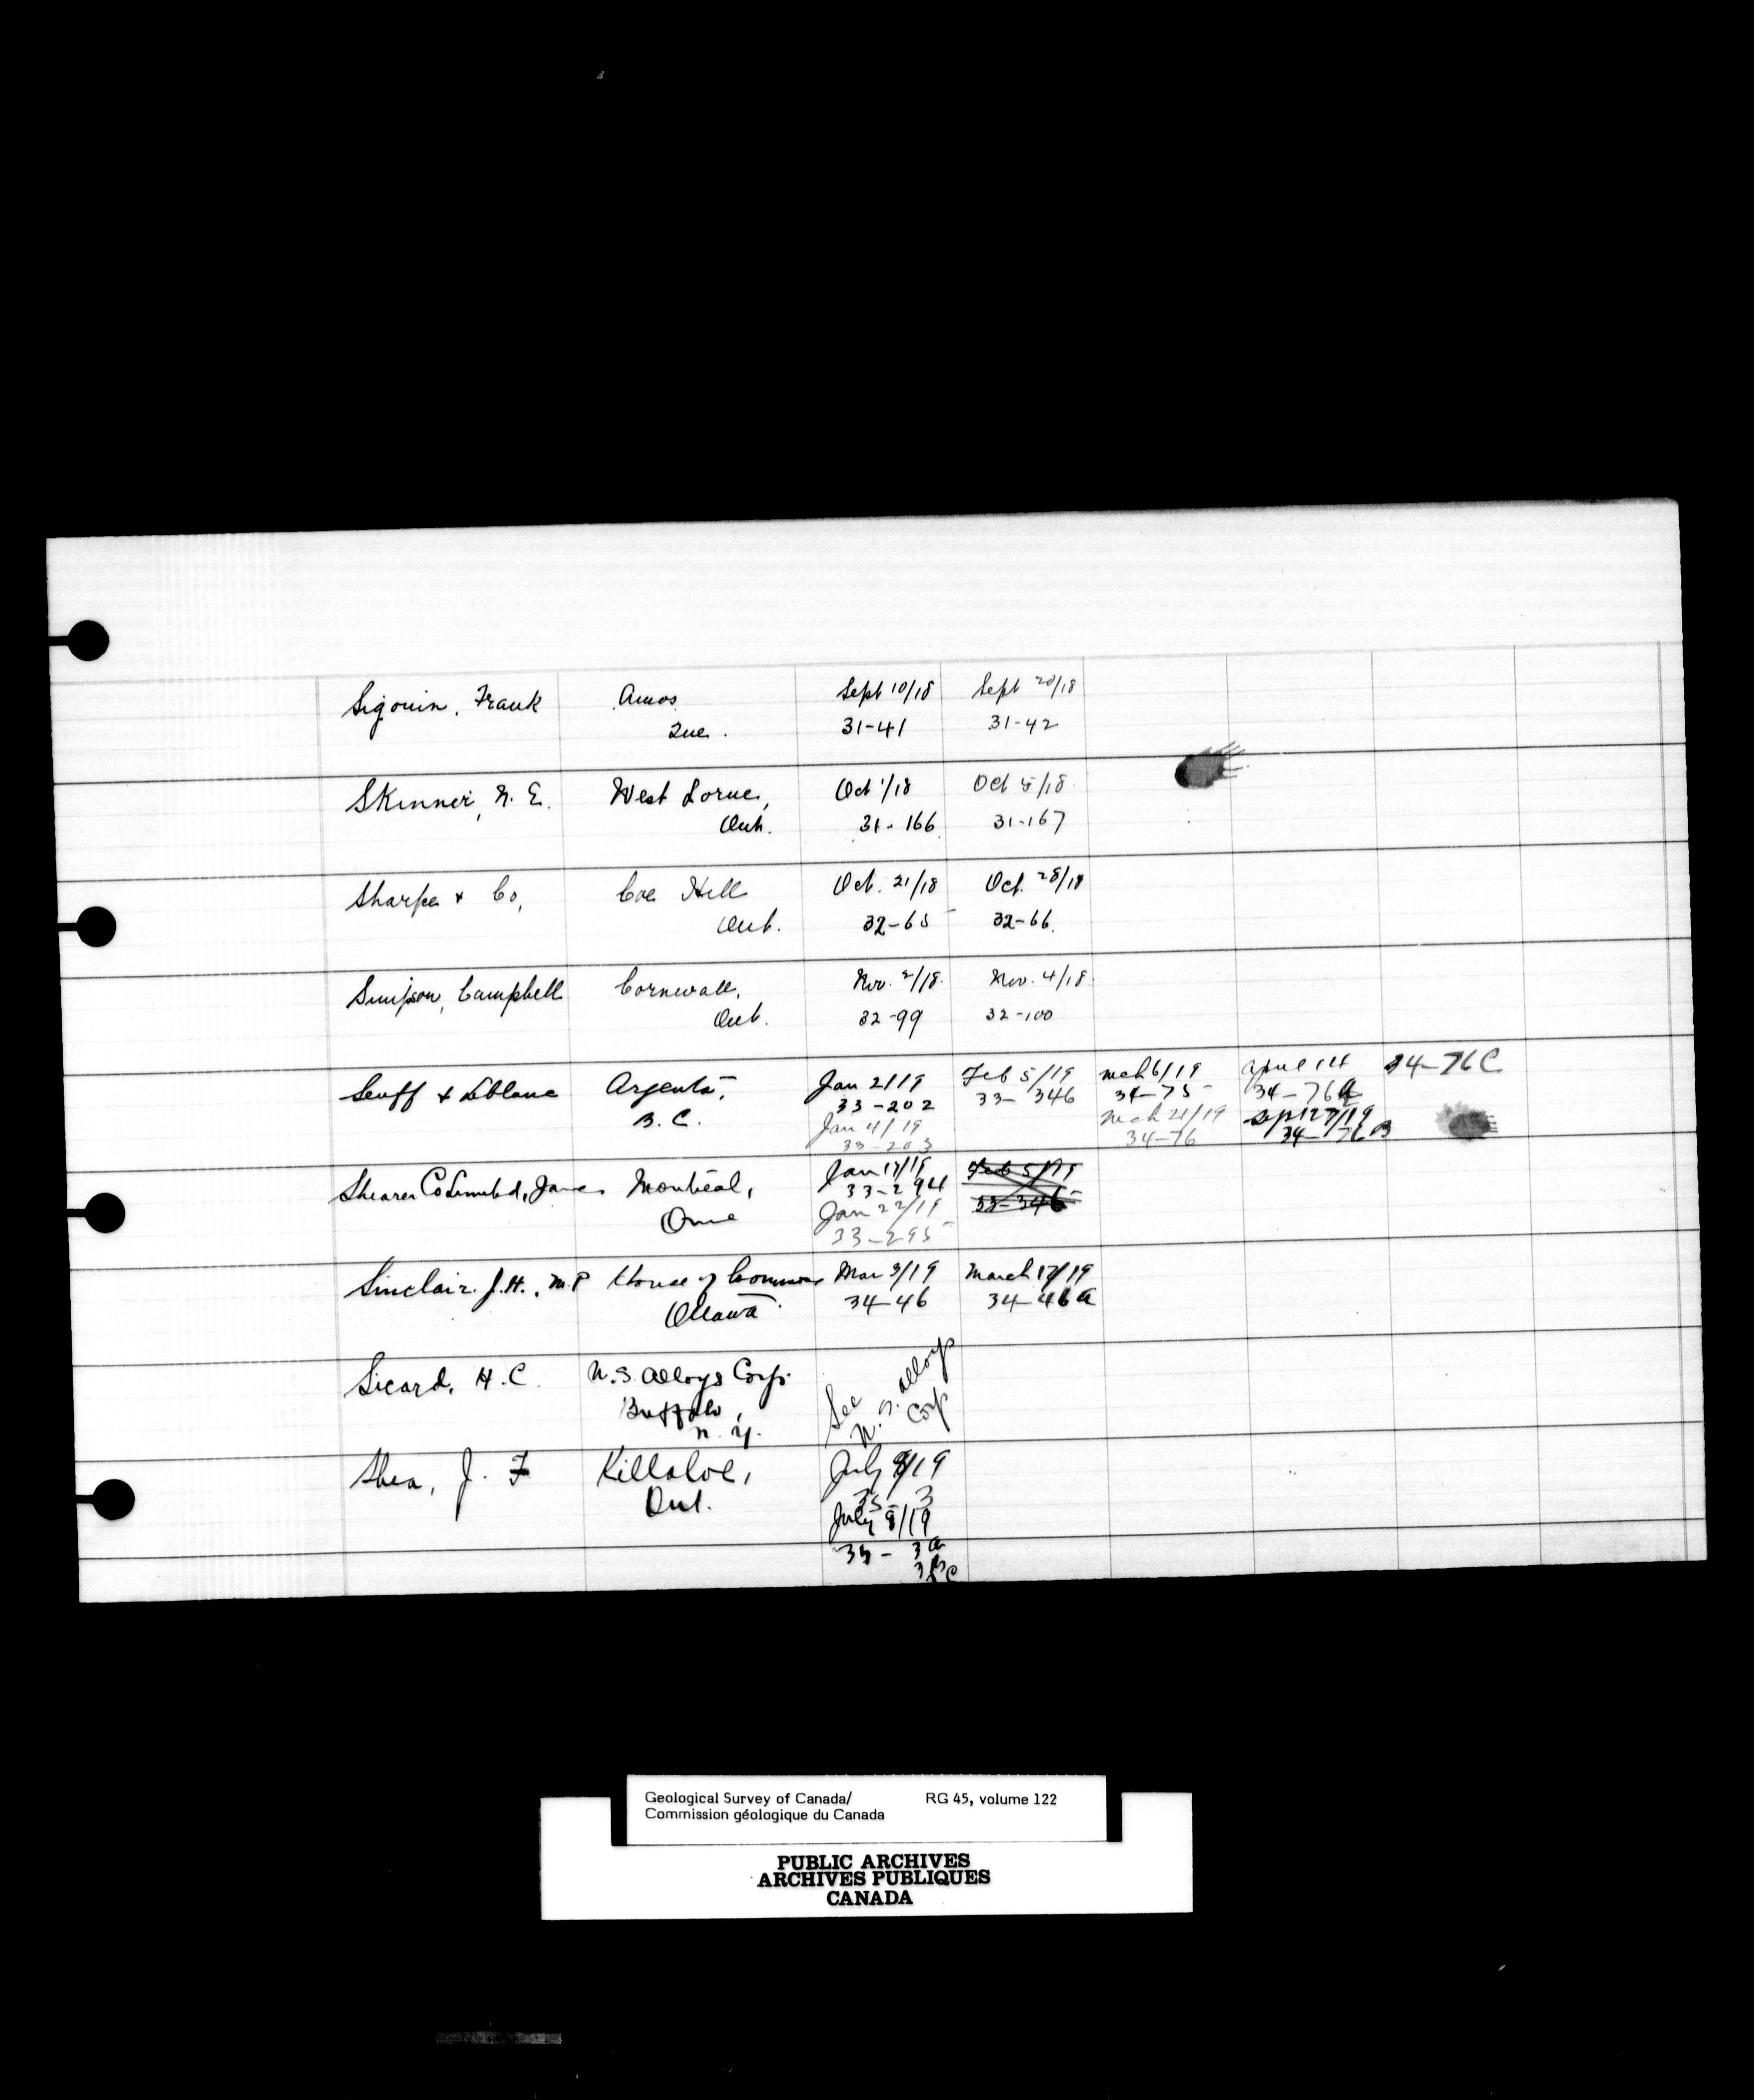 Sigouin, Frank Amos Sept 10/18 Sept 20/18
Que. 31-41 31-42
Skinner, N. E. West Lorne, Oct 1/18 Oct 5/18
Ont. 31-166 31-167
Sharpe & Co, Coe Hill Oct. 21/18 Oct. 28/18
Ont. 32-65 32-66
Simpson, Campbell Cornwall, Nov. 2/18 Nov. 4/18
Ont. 32-99 32-100
& Leblanc Argenta, Jan 2/19 Feb 5/19 Mch 6/19 April 14 34-76C
B.C. 33-202 33-346 34-75 34-76a
Jan 4/19 Mch 21/19 Sept 27/19
33-203 34-76 34-76B
Shearer Co Limited, James Montreal, Jan 17/19 Feb 5/19
Que 33-294 33-346
Jan 22/19
33-295
Sinclair. J.H., M.P House of Commons Mar 3/19 March 17/19
Ottawa 34-46 34-46a
Sicard, H.C. N.S. Alloys Corp. See N.S. Alloys Corp
Buffalo,
N.Y.
Shea, J. F Killaloe, July 8/19
Ont. 35-3
July 8/19
35-3a
3B
C
Geological Survey of Canada/ RG 45, volume 122
Commission géologique du Canada
PUBLIC ARCHIVES
ARCHIVES PUBLIQUES
CANADA